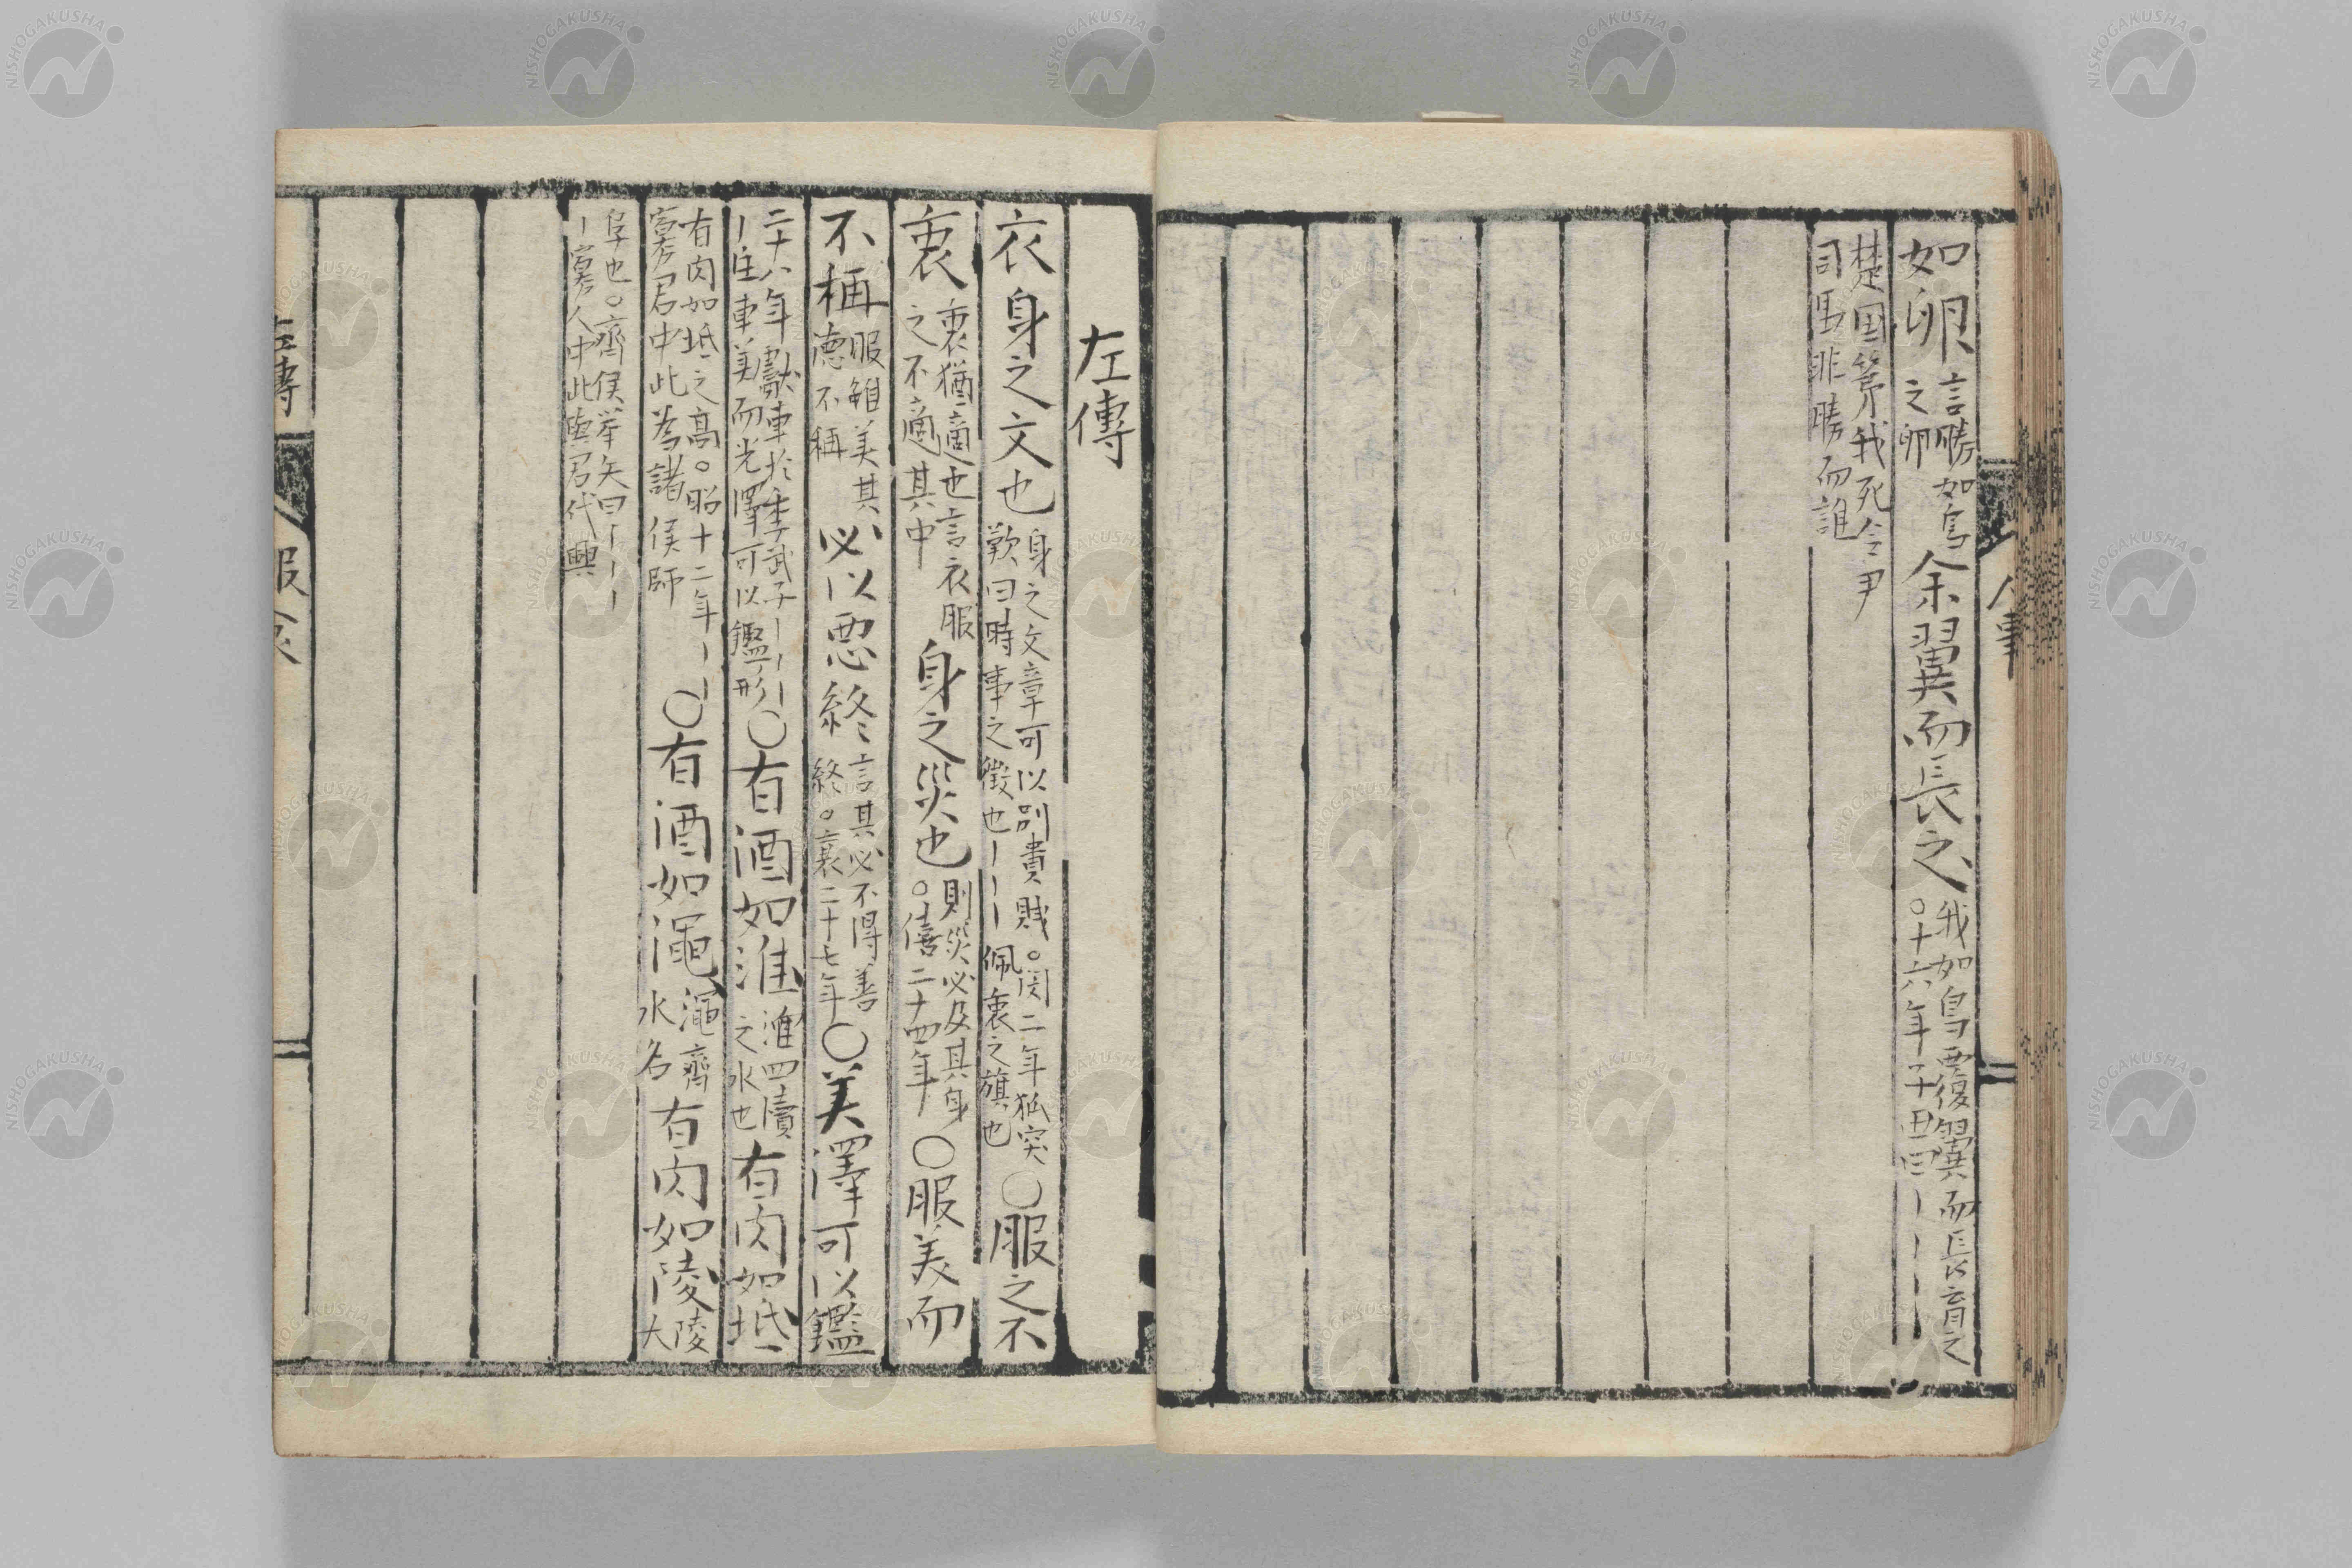 人事
如卵言勝如鳥之卵余翼而長之我如鳥覆翼而長育之○十六年子西曰丨丨丨
楚国第我死令尹司馬非勝而誰
左傳
衣身之文也身之文章可以別貴賤○閔二年狐突歎曰時事之徴也丨丨丨佩衷之旗也○服之不
衷衷猶適也言衣服之不適其中身之災也則災必及其身○僖二十四年○服美而
不稱服雖美其德不稱必以悪終言其必不得善終○襄二十七年○美澤可以鑑
二十八年獻車於季武子丨丨丨丨庄車美而光澤可以鑑形○有酒如淮淮四瀆之水也有肉如坻
有肉如坻之高○昭十二年丨丨寡君中此為諸侯師○有酒如澠澠齊水名有肉如陵陵大
阜也○齊侯举矢曰丨丨丨丨寡人中此與君代興
左傳 服食
NISHOGAKUSHA